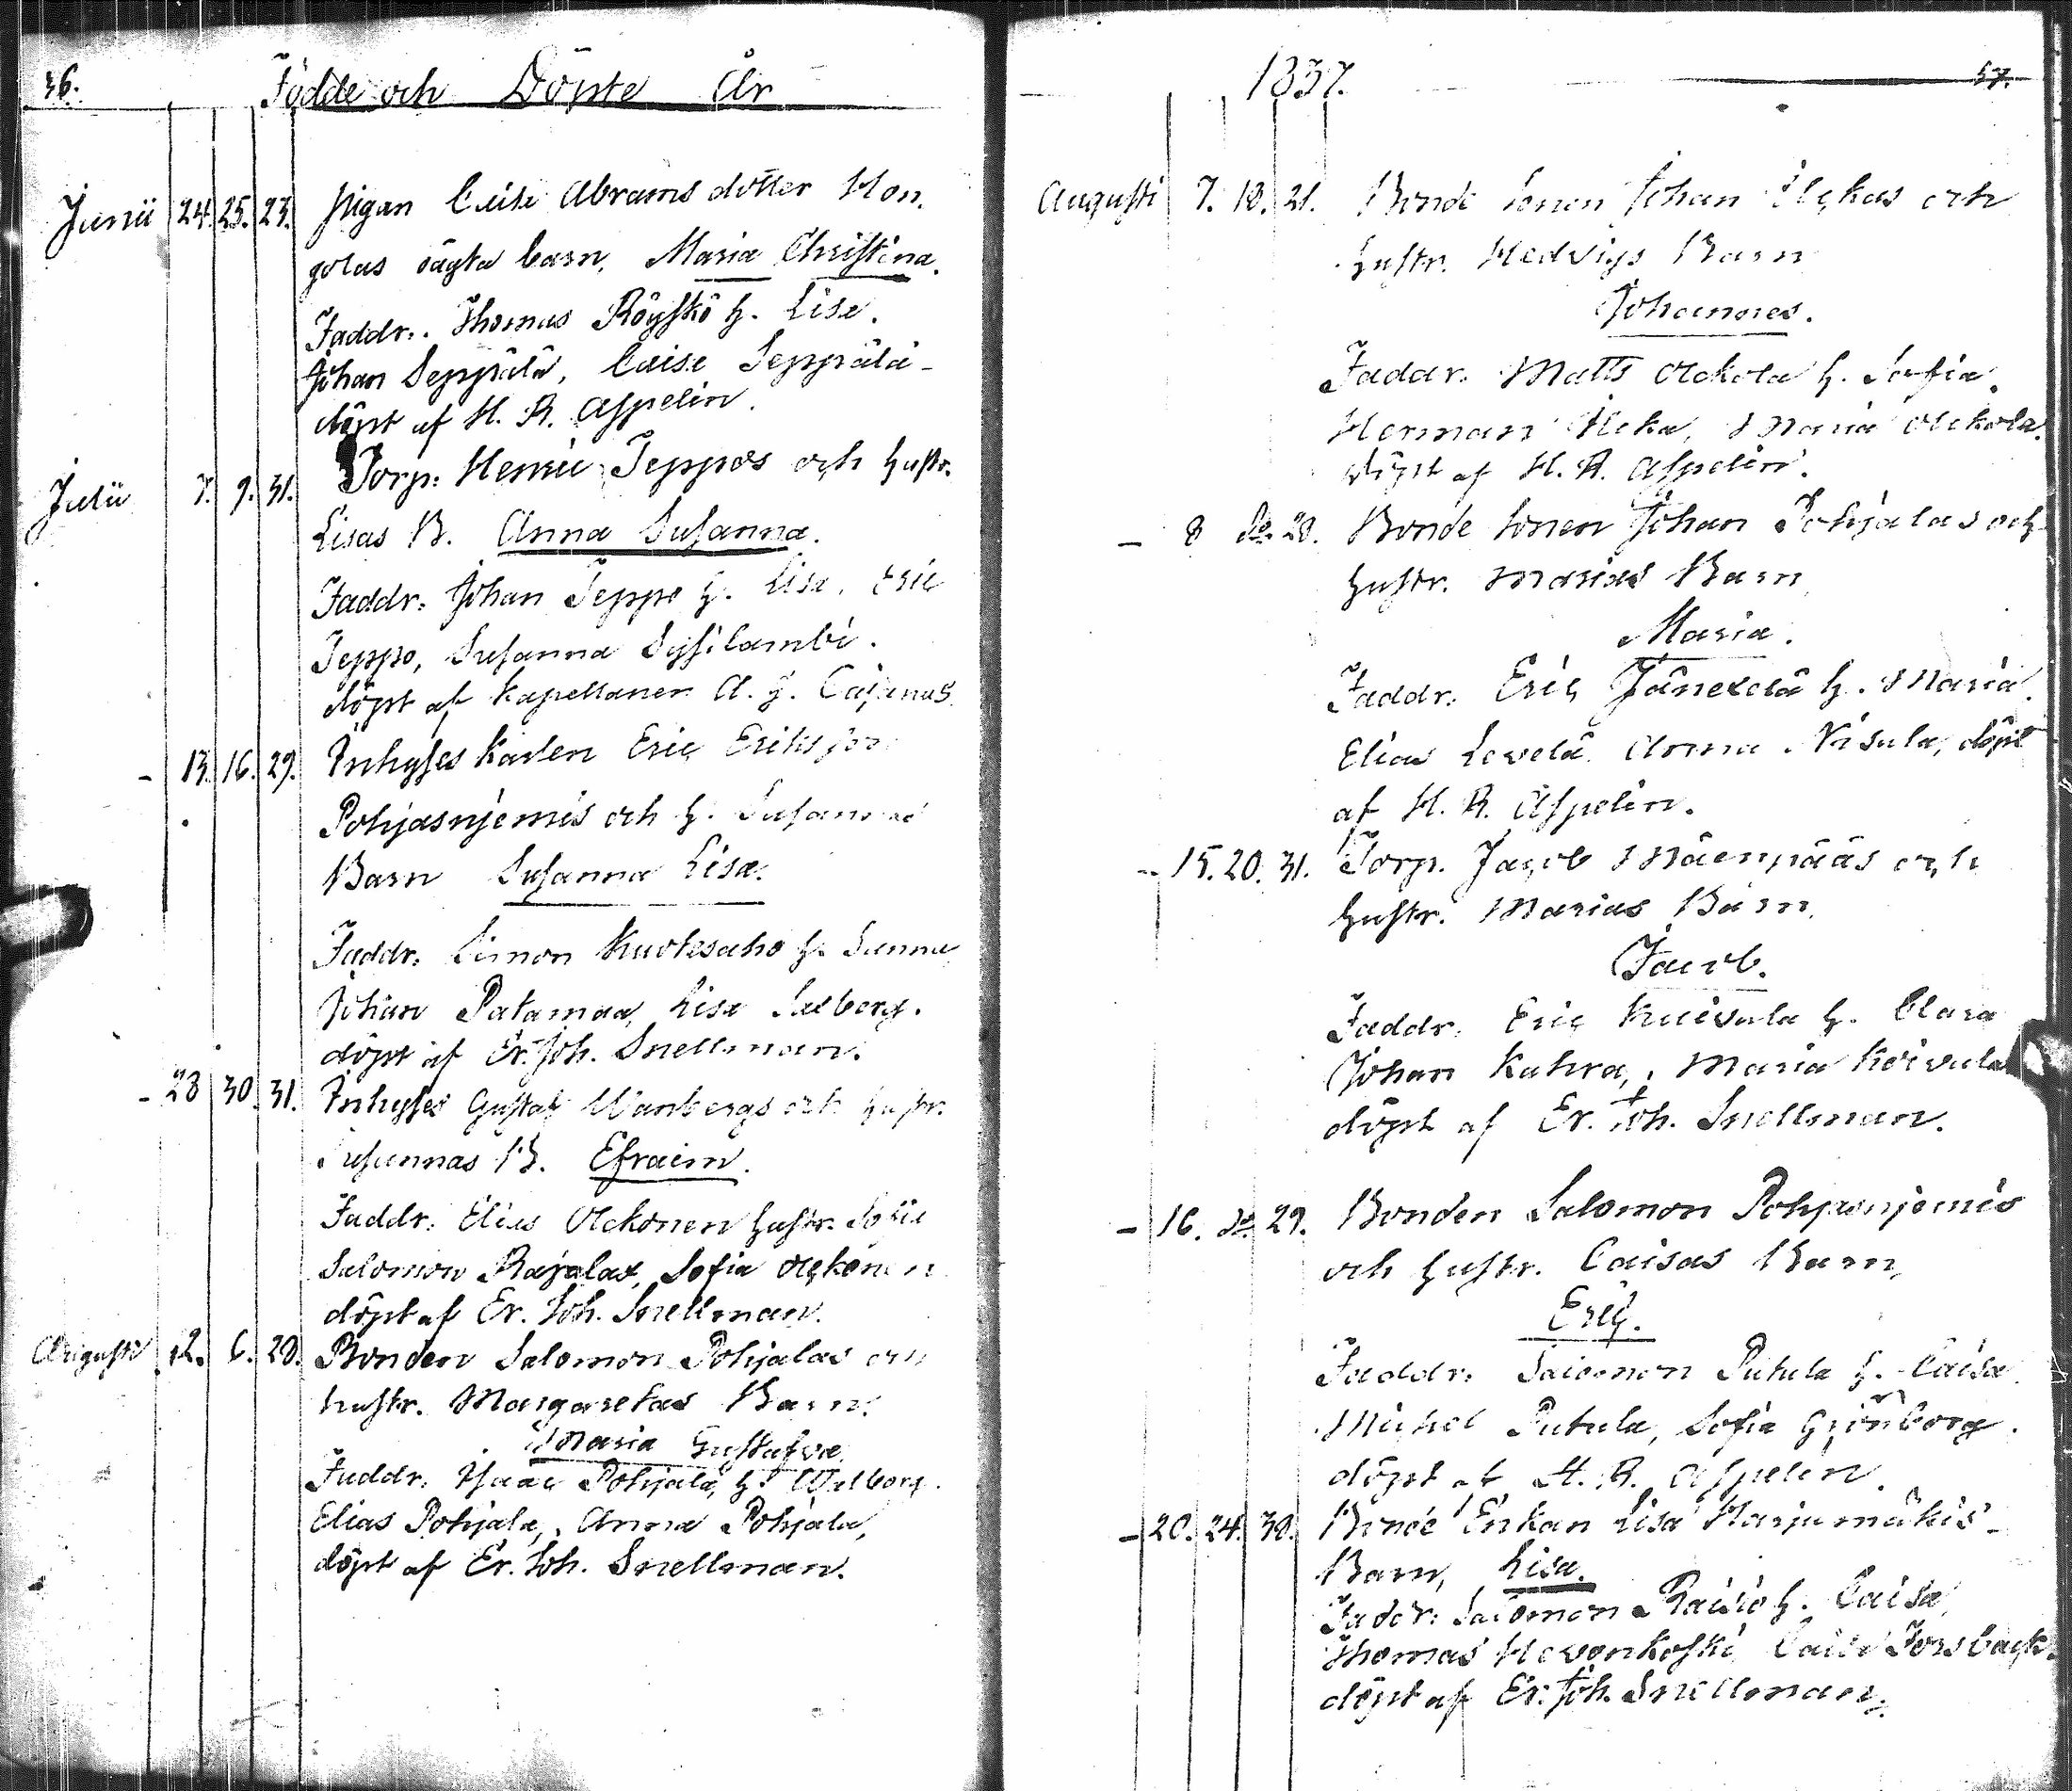 36.
Födde och Döpte År
Junii 24. 25. 23. pigan Caisa Abrams dotter Hon,
golas oägta barn, Maria Christina.
Faddr. Thomas Röyskö h. Lisa.
Johan Seppälä, Caisa Seppälä -
döpt af H. R. Aspelin.
Julii 7. 9. 31. Torp. Henric Jeppos och hustr.
Lisas B. Anna Susanna.
Faddr. Johan Jeppo h. Lisa, Eric
Jeppo, Susanna Sysilambi.
döpt af Kapellanen A. G. Cajanus
- 13. 16. 29. Inhyses karlen Eric Eriksson
Pohjasnjemis och h. Susannas
Barn Susanna Lisa.
Faddr. Simon Kuokesaho h. Sanna
Johan Patamaa, Lisa Salberg.
döpt af Er. Joh. Snellman.
- 28 30. 31. Inhyses Gustaf Wanbergs och hustr.
Susannas B. Efraim.
Faddr. Elias Olckonen hustr. Sofia
Salomon Rajalax, Sofia Olckonen
döpt af Er. Joh. Snellman.
Augusti 2. 6. 28. Bonden Salomon Pohjalas och
hustr. Margaretas Barn.
Maria Gustafva
Faddr. Isaac Pohjala, h. Walborg.
Elias Pohjala, Anna Pohjala,
döpt af Er. Joh. Snellman.
1837.
37.
Augusti 7. 18. 21. Bonde Sonen Johan Ilckas och
hustr. Hedvigs Barn
Johannes.
Faddr. Matts Olckola h. Sofia.
Herman Ilcka, Maria Olckola.
döpt af H. R. Aspelin.
- 8 do. 28. Bonde Sonen Johan Pohjalas och
hustr. Marias Barn
Maria.
Faddr. Eric Jänexelä h. Maria.
Elias Levelä Anna Nisula, döpt
af H. R. Aspelin.
- 15. 20. 31. Torp. Jacob Mäenpääs och
hustr. Marias Barn,
Jacob.
Faddr. Eric Kuivula h. Clara
Johan Kahra, Maria Koivula
döpt af Er. Joh. Snellman.
- 16. do. 29. Bonden Salomon Pohjasnjemis
och hustr. Caisas Barn,
Eric.
Faddr. Salomon Putula h. Caisa
Michel Putula, Sofia Grönborg.
döpt af H. R. Aspelin.
- 20. 24. 38. Bonde Enkan Lisa Harjumäkis -
Barn, Lisa.
Faddr. Salomon Raisio h. Caisa,
Thomas Hevonkoski Caisa Forsback.
döpt af Er. Joh. Snellman.